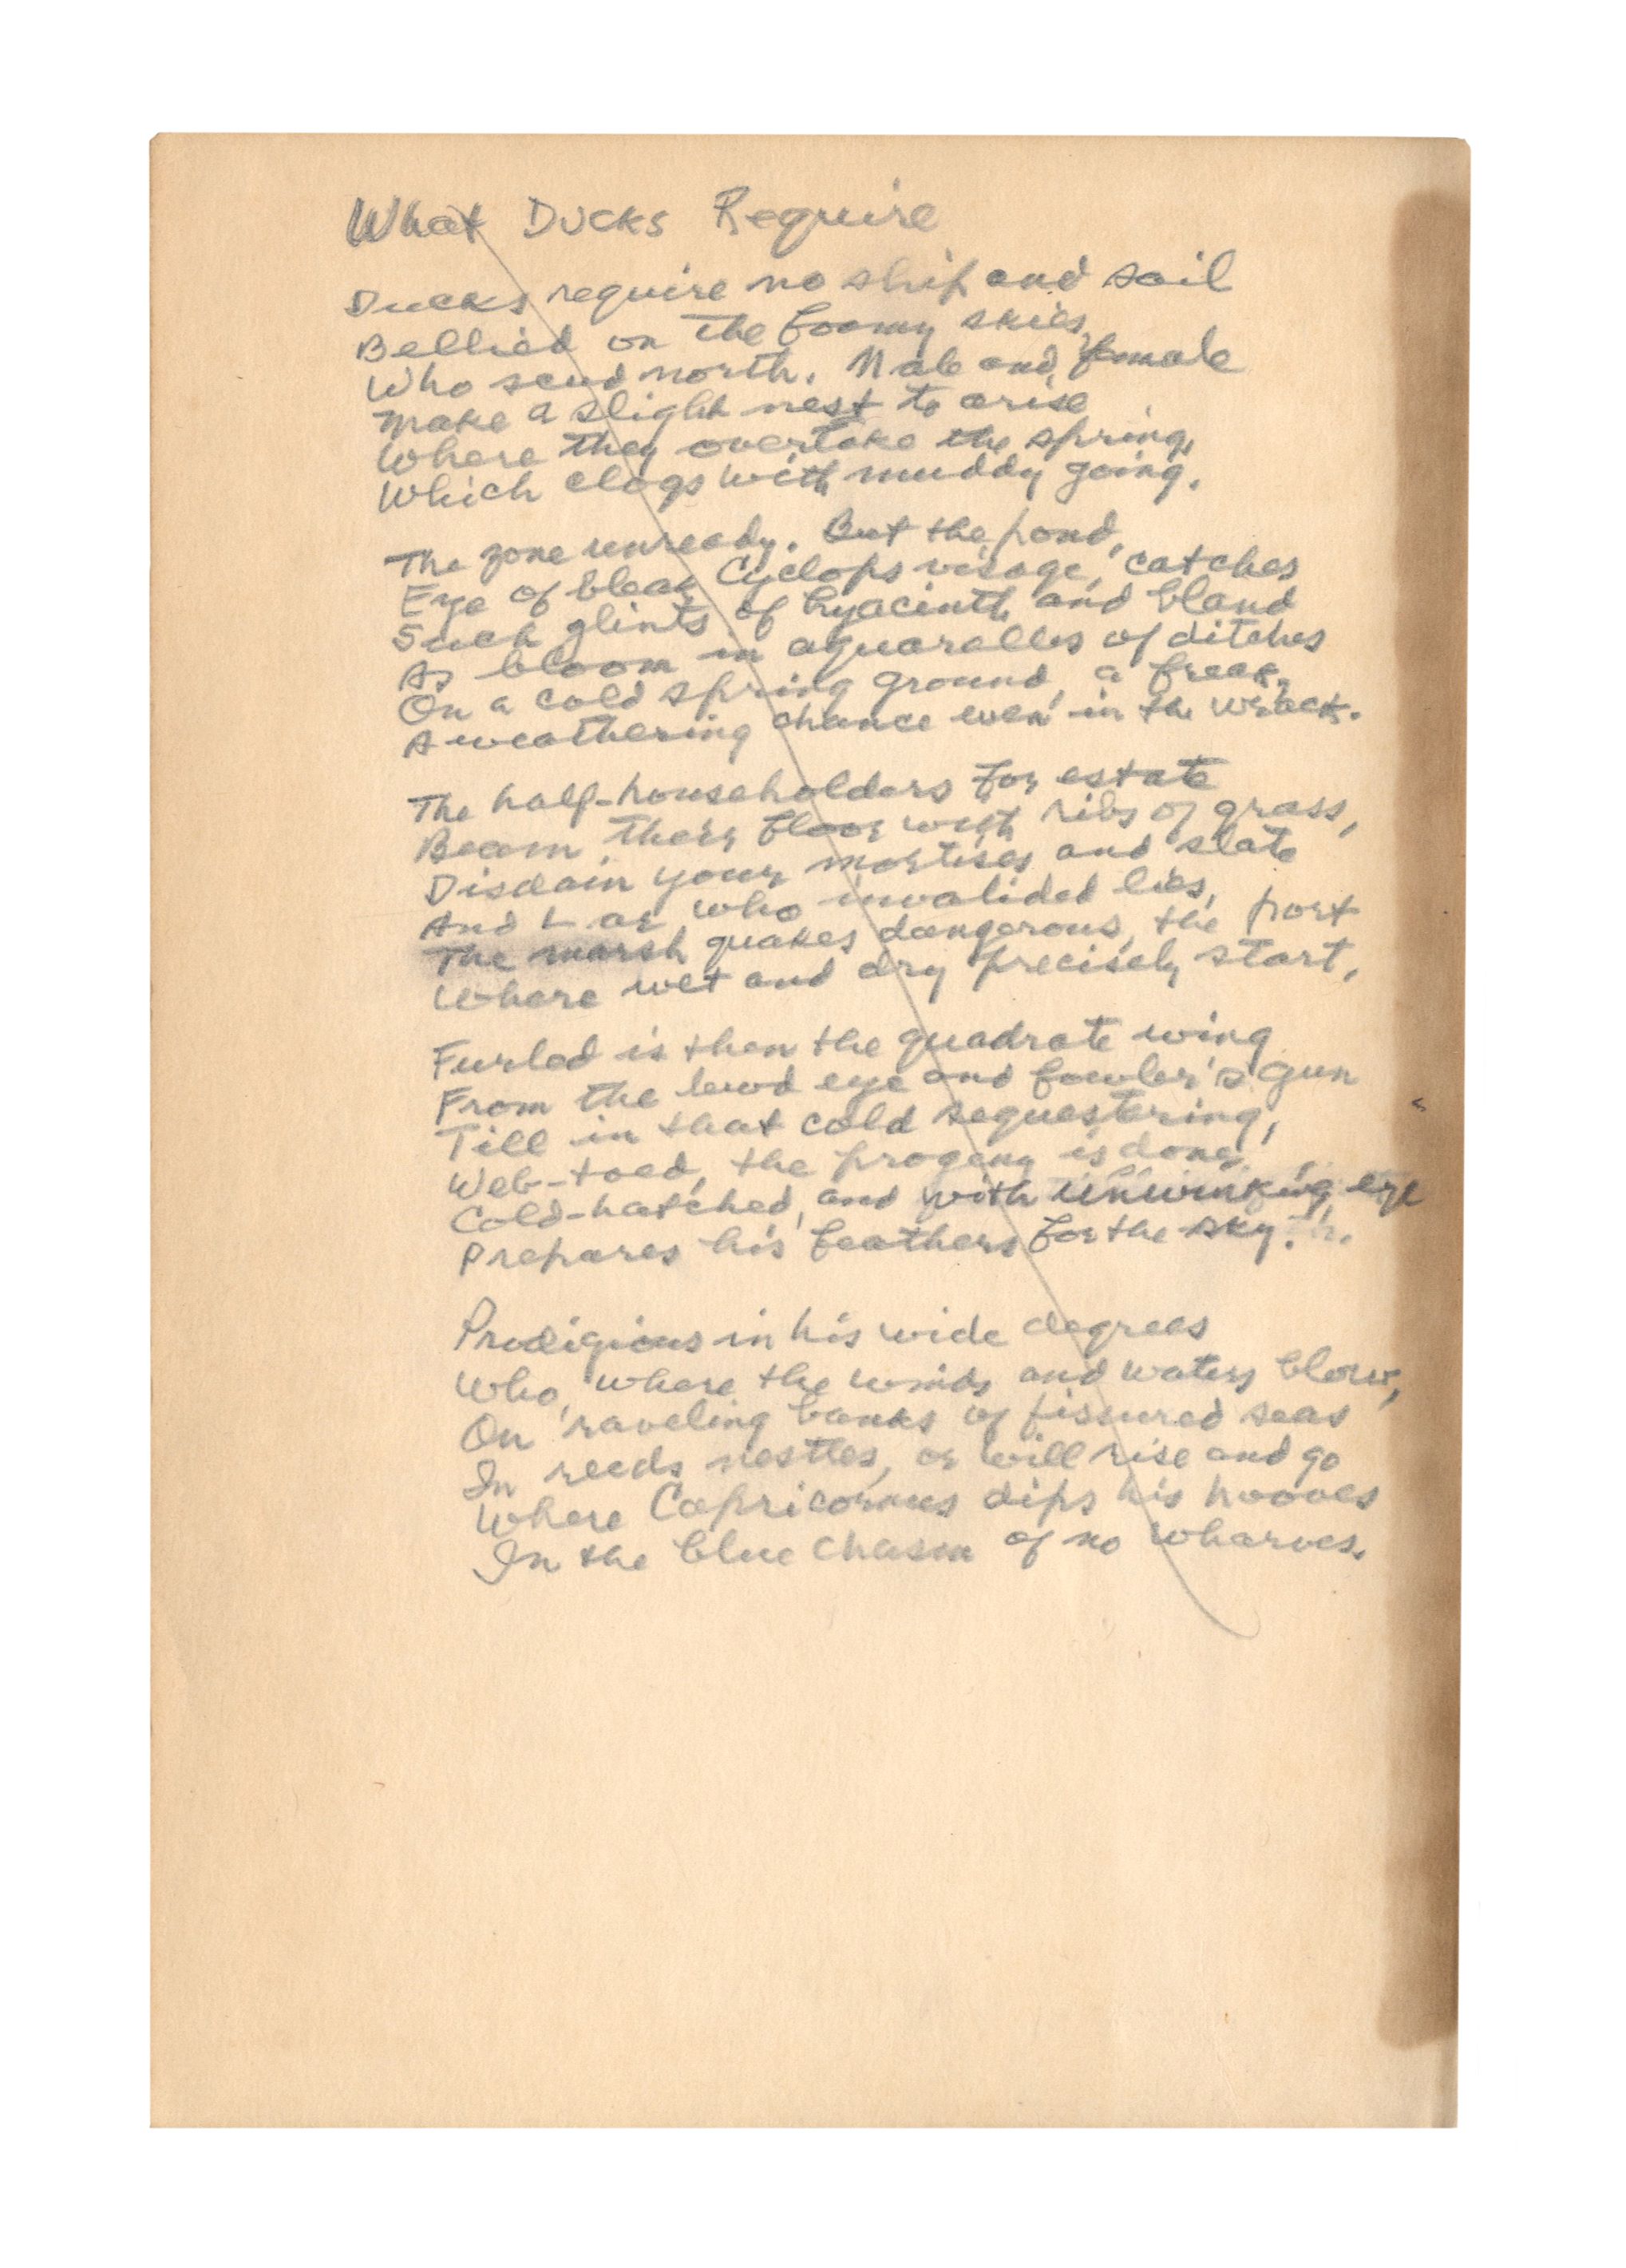 What Ducks Require
Ducks require no ship and sail
Bellied on the foamy skies,
Who scud north. Male and female
Make a slight nest to arise
Where they overtake the spring,
Which clogs with muddy going.
The zone unready. But the pond,
Eye of bleak Cyclops visage, catches
Such glints of hyacinth and bland
As bloom in aquarelles of ditches
On a cold spring ground, a freak,
A weathering chance even in the wrack.
The half-householders for estate
Beam their floor with ribs of grass,
Disdain your mortises and slate
And Lar who invalided lies,
The marsh quakes dangerous, the port
Where wet and dry precisely start,
Furled is then the quadrate wing
From the lewd eye and fowler's gun
Till in that cold sequestering,
Web-toed, the progeny is done,
Cold-hatched, and with unwinking eye
Prepares his feathers for the sky.
Prodigious in his wide degrees
Who, where the winds and waters blow,
On raveling banks of fissured seas
In reeds nestles, or will rise and go
Where Capricornus dips his hooves
In the blue chasm of no wharves.